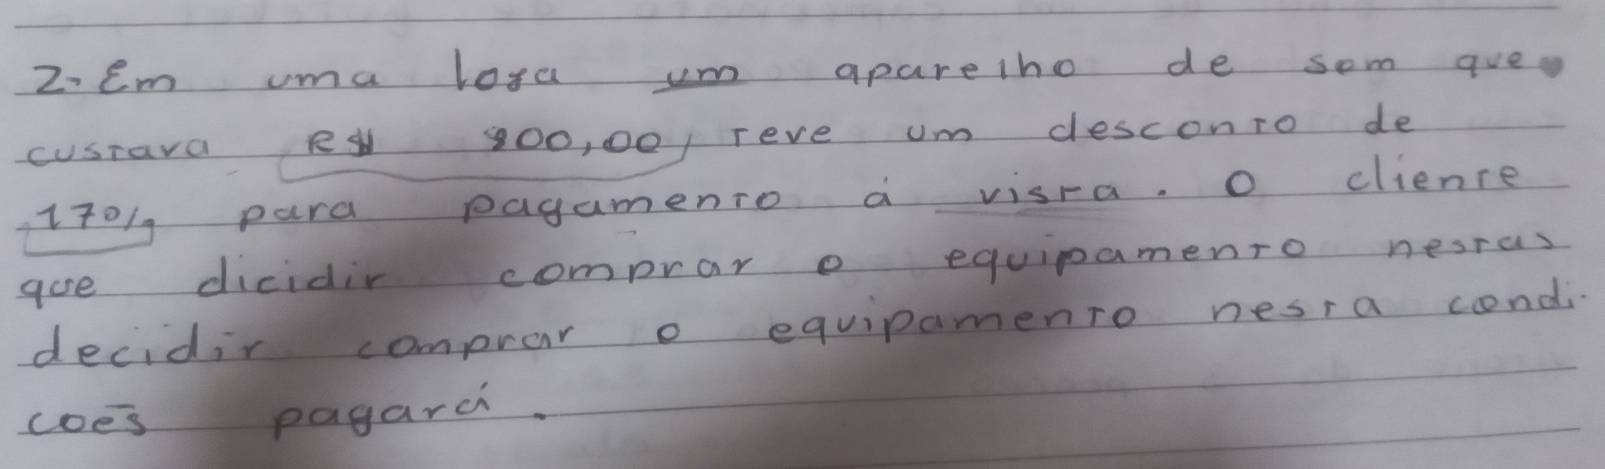 2- Em uma loja um aparelho de som que
custava R$ 900,00, teve um desconto de
17% para pagamento á vista. O cliente
que dicidir comprar o equipamento nestas
decidir comprar o equipamento nesta condi-
coēs pagará.